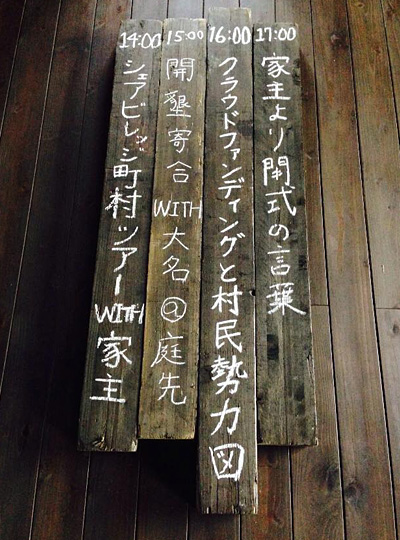 14:00
シェアビレッジ町村ツアーWITH家主
15:00
開墾寄合WITH大名@庭先
16:00
クラウドファンディングと村民勢力図
17:00
家主より閉式の言葉